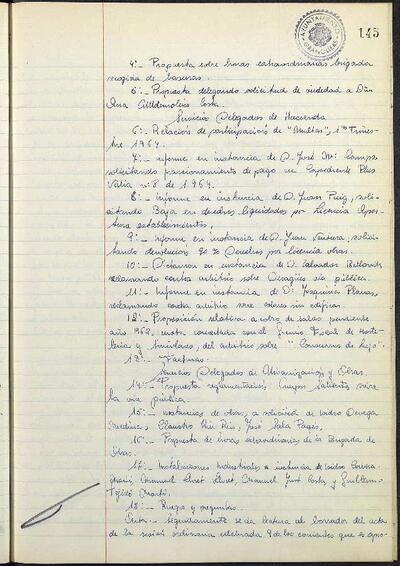 AYUNTAMIENTO
GRANOLLERS
145
4º.- Propuesta sobre horas extraordinarias brigada
recogida de basuras.
5º.- Propuesta delegando solicitud de viudedad a Dña
Ana Costa.
Servicio Delegados de Hacienda
6º.- Relación de participación de "Multas", 1er Trimes-
tre 1964.
7º.- Informe en instancia de D. José Mª Camps
solicitando fraccionamiento de pago en Expediente Plus
Valía nº 8 de 1.964.
8º.- Informe en instancia de D. Juan Puig, soli-
citando Baja en derechos liquidados por Licencia Aper-
tura establecimientos.
9º.- Informe en instancia de D. Juan Ventura, solici-
tando devolución de Derechos por licencia obras.
10º.- Dictamen en instancia de D. Salvador
reclamando contra arbitrio sobre Desagües vía pública.
11º.- Informe en instancia de Dª Joaquina Planas,
reclamando contra arbitrio sobre solares sin edificar.
12º.- Proposición relativa a cobro de saldo pendiente
año 1962, cuota concertada con el Gremio Fiscal de Hoste-
lería y Similares, del arbitrio sobre "Consumos de lujo".
13º.- Facturas.
Servicios Delegados de Urbanización y Obras.
14º.- Propuesta reglamentación Cuerpos salientes sobre
la vía pública.
15º.- Instancias de obras, a solicitud de Isidro
Claustro Riu Riu, José Sala Pagés,
16º.- Propuesta de horas extraordinarias de la Brigada de
Obras.
17º.- Instalaciones Industriales a instancia de Isidro
Manuel Llobet Llobet, Manuel Costa y Guillermo
Tejedo
18º.- Ruegos y preguntas.
Seguidamente se da lectura al borrador del acta
de la sesión ordinaria celebrada 9 de los corrientes que es apro-